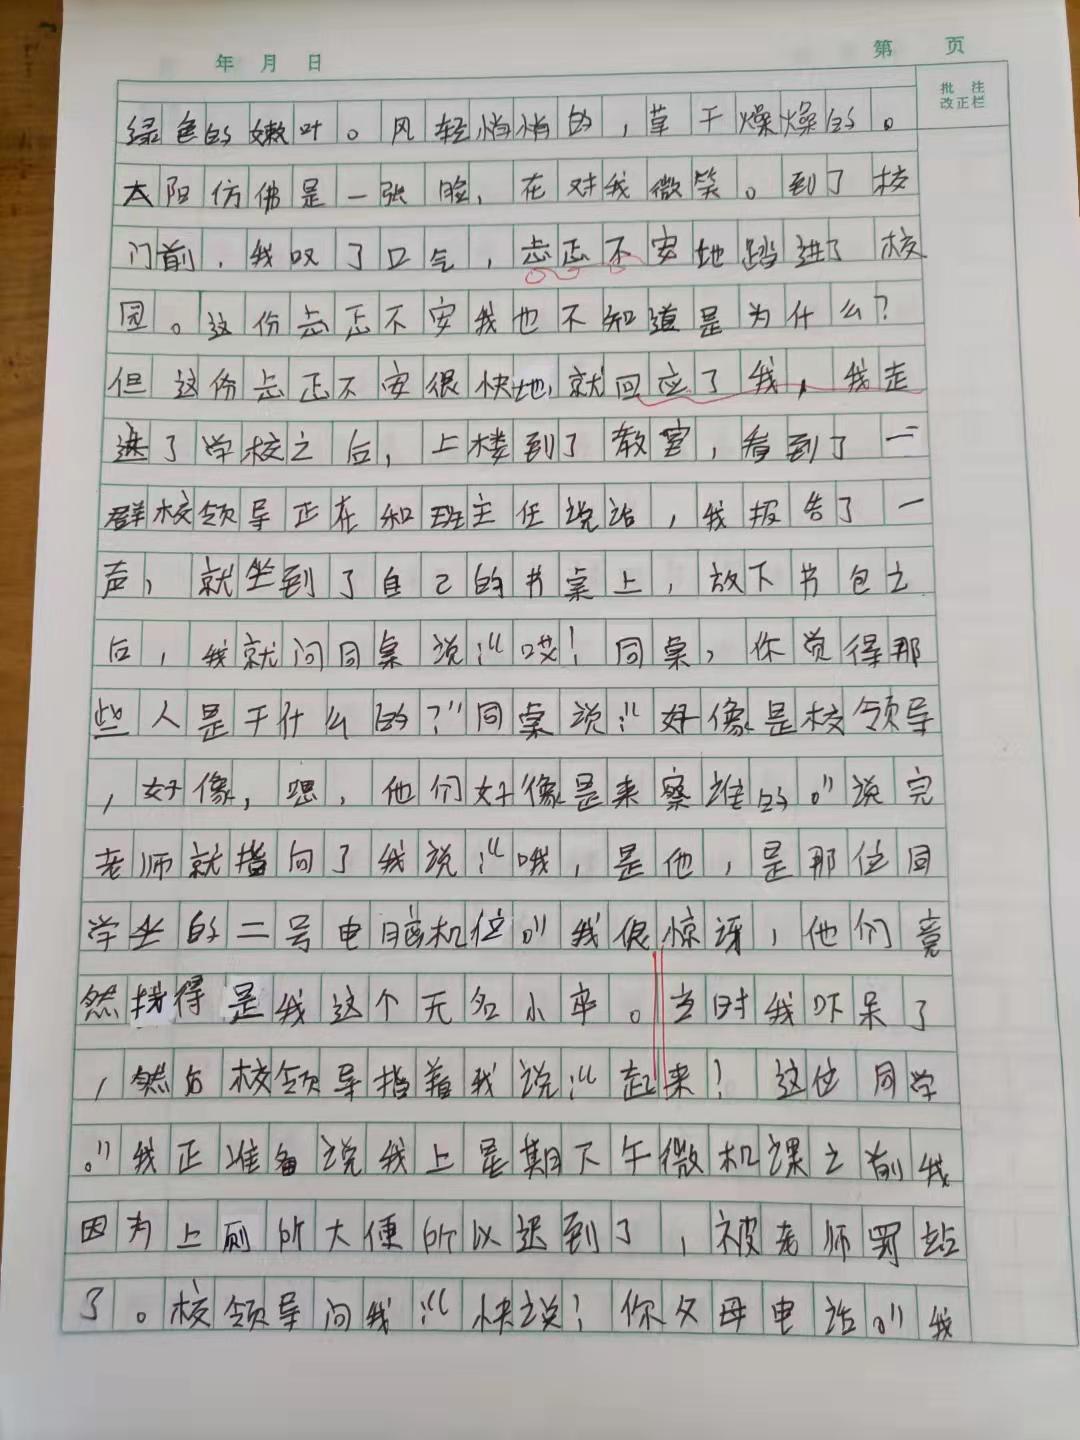 年 月 日 第 页
批 注
改正栏
绿色的嫩叶。风轻悄悄的，草干燥燥的。
太阳仿佛是一张脸，在对我微笑。到了校
门前，我叹了口气，忐忑不安地踏进了校
园。这份忐忑不安我也不知道是为什么？
但这份忐忑不安很快地就回应了我，我走
进了学校之后，上楼到了教室，看到了一
群校领导正在和班主任说话，我报告了一
声，就坐到了自己的书桌上，放下书包之
后，我就问同桌说：“哎！同桌，你觉得那
些人是干什么的？”同桌说：“好像是校领导
，好像，嗯，他们好像是来察谁的。”说完
老师就指向了我说：“哦，是他，是那位同
学坐的二号电脑机位。”我很惊讶，他们竟
然找得是我这个无名小卒。当时我吓呆了
，然后校领导指着我说：“起来！这位同学
。”我正准备说我上星期下午微机课之前我
因为上厕所大便所以迟到了，被老师罚站
了。校领导问我：“快说！你父母电话。”我